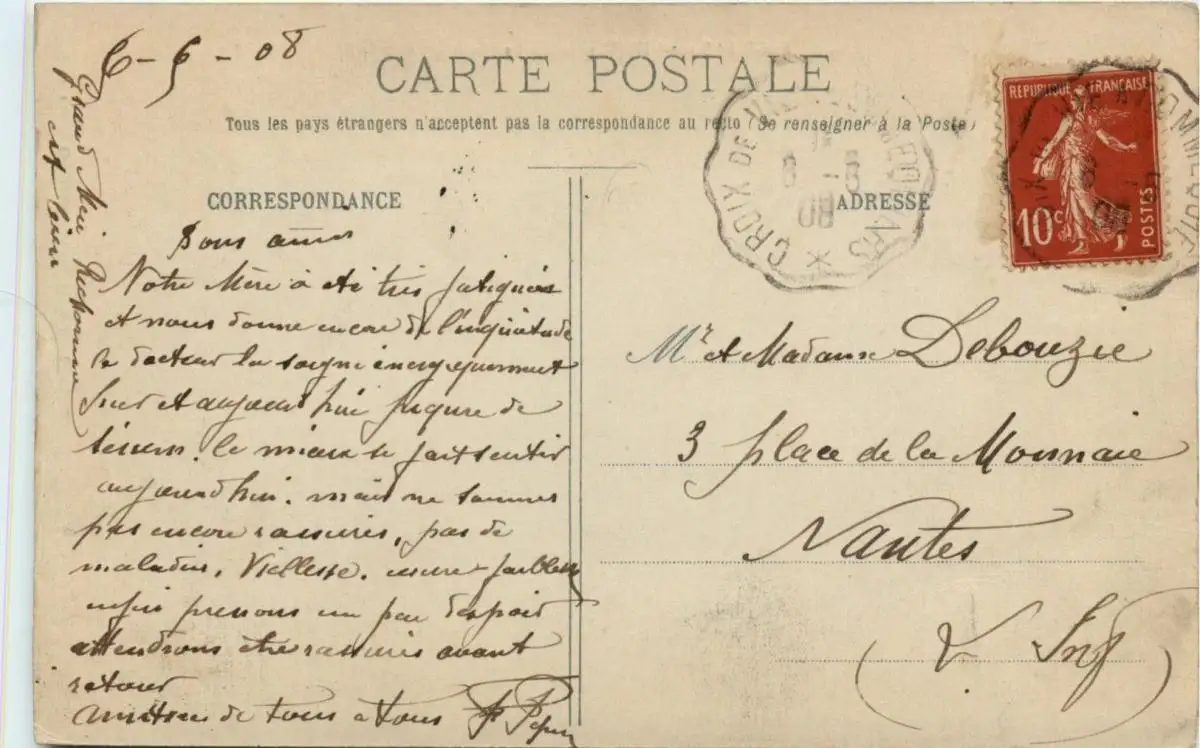 6-5-08
CARTE POSTALE
Tous les pays étrangers n'acceptent pas la correspondance au recto (Se renseigner à la Poste)
CORRESPONDANCE
ADRESSE
REPUBLIQUE FRANÇAISE
10c
POSTES
CROIX DE VIE
Notre Mère à été très fatiguée
et nous donne encore de l'inquiétude
le docteur la soigne énergiquement
hier et aujourd'hui piqure de
le mieux se fait sentir
aujourd'hui. mais ne sommes
pas encore rassurés, pas de
maladie, Viellesse. usure faiblesse
enfin prenons un peu d'espoir
attendrons être rassurés avant
retour
de tous a tous
Grand Mère
est bien
Mr et Madame Debouzie
3 place de la Monnaie
Nantes
(L Inf)